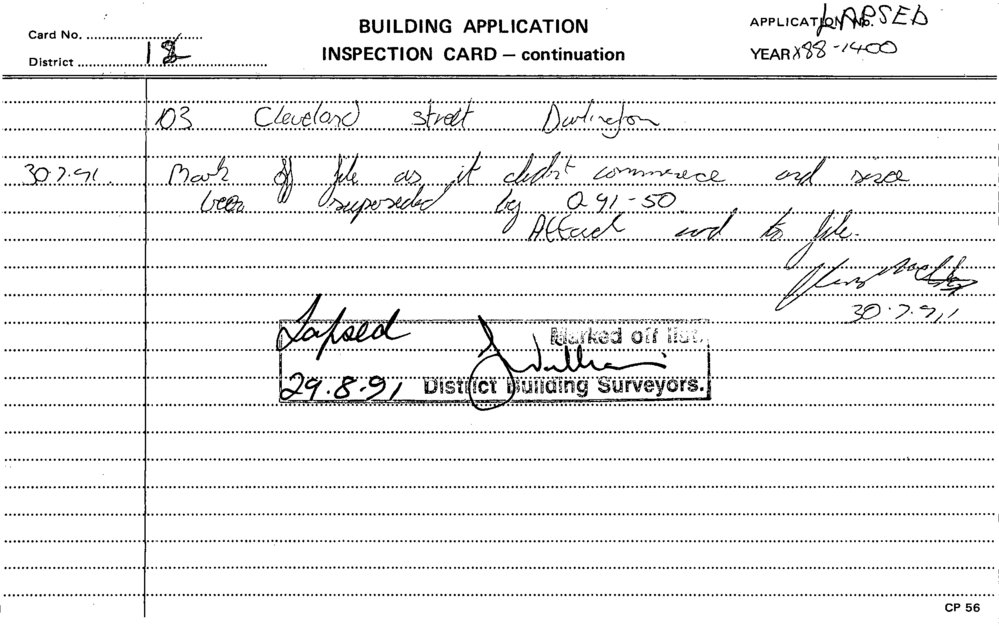 Card No.
BUILDING APPLICATION
APPLICATION No. LAPSED
District 18
INSPECTION CARD — continuation
YEAR X88-1400
103 Cleveland street Darlington
30.7.91. Mark off file as it didn't commence and since
been superseded by Q 91-50
Attach card to file.
30.7.91
Lapsed Marked off list.
29.8.91 District Building Surveyors.
CP 56